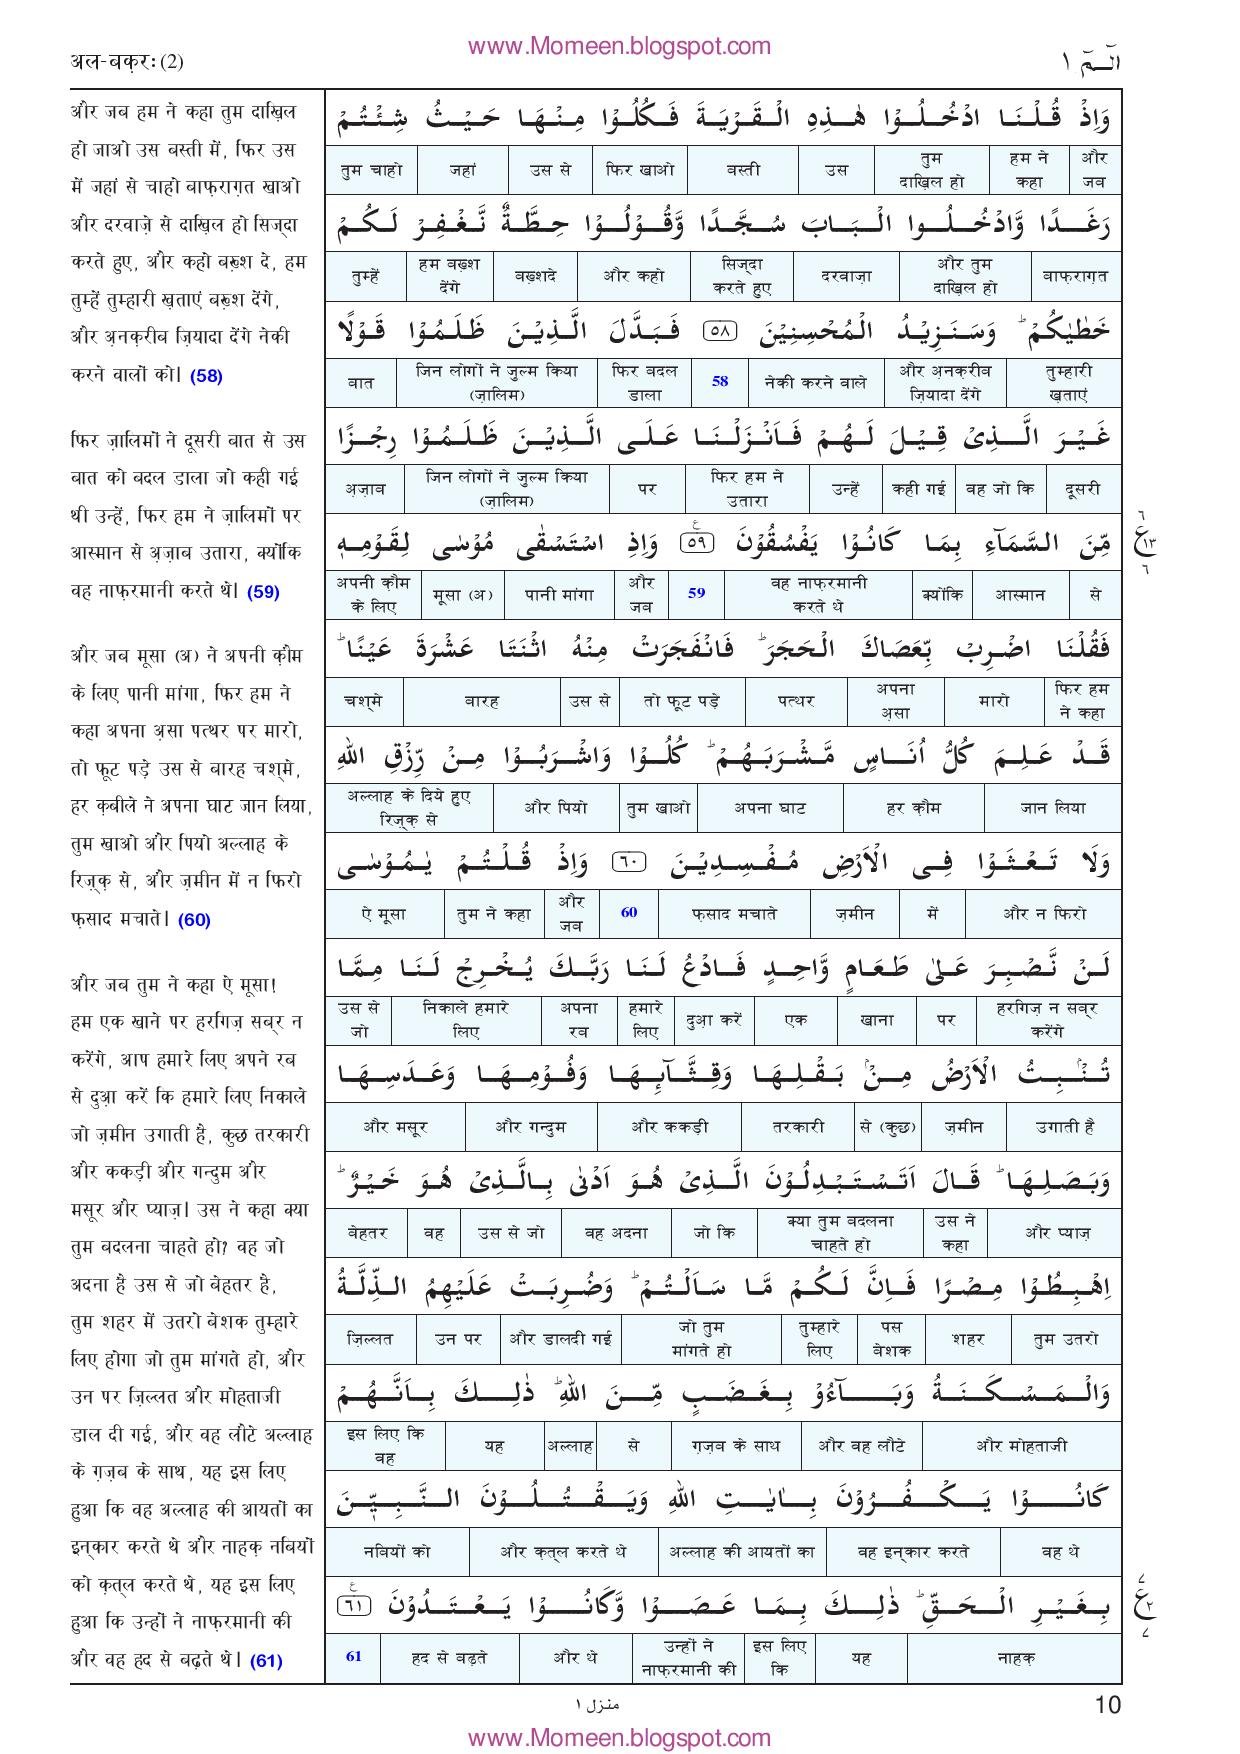 www.Momeen.blogspot.com
अल-बक़रः (2)
الٓـمّٓ ١
और जब हम ने कहा तुम दाख़िल
हो जाओ उस बस्ती में, फिर उस
में जहां से चाहो बाफ़राग़त खाओ
और दरवाज़े से दाख़िल हो सिज्दा
करते हुए, और कहो बख़्श दे, हम
तुम्हें तुम्हारी ख़ताएं बख़्श देंगे,
और अ़नक़रीब ज़ियादा देंगे नेकी
करने वालों को। (58)
फिर ज़ालिमों ने दूसरी बात से उस
बात को बदल डाला जो कही गई
थी उन्हें, फिर हम ने ज़ालिमों पर
आस्मान से अ़ज़ाब उतारा, क्योंकि
वह नाफ़रमानी करते थे। (59)
और जब मूसा (अ) ने अपनी क़ौम
के लिए पानी मांगा, फिर हम ने
कहा अपना अ़सा पत्थर पर मारो,
तो फूट पड़े उस से बारह चश्मे,
हर क़बीले ने अपना घाट जान लिया,
तुम खाओ और पियो अल्लाह के
रिज़्क़ से, और ज़मीन में न फिरो
फ़साद मचाते। (60)
और जब तुम ने कहा ऐ मूसा!
हम एक खाने पर हरगिज़ सब्र न
करेंगे, आप हमारे लिए अपने रब
से दुआ़ करें कि हमारे लिए निकाले
जो ज़मीन उगाती है, कुछ तरकारी
और ककड़ी और गन्दुम और
मसूर और प्याज़। उस ने कहा क्या
तुम बदलना चाहते हो? वह जो
अदना है उस से जो बेहतर है,
तुम शहर में उतरो बेशक तुम्हारे
लिए होगा जो तुम मांगते हो, और
उन पर ज़िल्लत और मोहताजी
डाल दी गई, और वह लौटे अल्लाह
के ग़ज़ब के साथ, यह इस लिए
हुआ कि वह अल्लाह की आयतों का
इन्कार करते थे और नाहक़ नबियों
को क़त्ल करते थे, यह इस लिए
हुआ कि उन्हों ने नाफ़रमानी की
और वह हद से बढ़ते थे। (61)
وَاِذۡ قُلۡنَا ادۡخُلُوۡا هٰذِهِ الۡقَرۡيَةَ فَكُلُوۡا مِنۡهَا حَيۡثُ شِئۡتُمۡ
और जब | हम ने कहा | तुम दाख़िल हो | उस | बस्ती | फिर खाओ | उस से | जहां | तुम चाहो
رَغَدًا وَّادۡخُلُوا الۡبَابَ سُجَّدًا وَّقُوۡلُوۡا حِطَّةٌ نَّغۡفِرۡ لَكُمۡ
बाफ़राग़त | और तुम दाख़िल हो | दरवाज़ा | सिज्दा करते हुए | और कहो | बख़्शदे | हम बख़्श देंगे | तुम्हें
خَطٰيٰكُمۡ ؕ وَسَنَزِيۡدُ الۡمُحۡسِنِيۡنَ ٥٨ فَبَدَّلَ الَّذِيۡنَ ظَلَمُوۡا قَوۡلًا
तुम्हारी ख़ताएं | और अ़नक़रीब ज़ियादा देंगे | नेकी करने वाले | 58 | फिर बदल डाला | जिन लोगों ने जुल्म किया (ज़ालिम) | बात
غَيۡرَ الَّذِىۡ قِيۡلَ لَهُمۡ فَاَنۡزَلۡنَا عَلَى الَّذِيۡنَ ظَلَمُوۡا رِجۡزًا
दूसरी | वह जो कि | कही गई | उन्हें | फिर हम ने उतारा | पर | जिन लोगों ने जुल्म किया (ज़ालिम) | अ़ज़ाब
مِّنَ السَّمَآءِ بِمَا كَانُوۡا يَفۡسُقُوۡنَ ٥٩ ع وَاِذِ اسۡتَسۡقٰى مُوۡسٰى لِقَوۡمِهٖ
٦ ع ١٣ ٦
से | आस्मान | क्योंकि | वह नाफ़रमानी करते थे | 59 | और जब | पानी मांगा | मूसा (अ) | अपनी क़ौम के लिए
فَقُلۡنَا اضۡرِبْ بِّعَصَاكَ الۡحَجَرَ ؕ فَانۡفَجَرَتۡ مِنۡهُ اثۡنَتَا عَشۡرَةَ عَيۡنًا ؕ
फिर हम ने कहा | मारो | अपना अ़सा | पत्थर | तो फूट पड़े | उस से | बारह | चश्मे
قَدۡ عَلِمَ كُلُّ اُنَاسٍ مَّشۡرَبَهُمۡ ؕ كُلُوۡا وَاشۡرَبُوۡا مِنۡ رِّزۡقِ اللّٰهِ
जान लिया | हर क़ौम | अपना घाट | तुम खाओ | और पियो | अल्लाह के दिये हुए रिज़्क़ से
وَلَا تَعۡثَوۡا فِى الۡاَرۡضِ مُفۡسِدِيۡنَ ٦٠ وَاِذۡ قُلۡتُمۡ يٰمُوۡسٰى
और न फिरो | में | ज़मीन | फ़साद मचाते | 60 | और जब | तुम ने कहा | ऐ मूसा
لَنۡ نَّصۡبِرَ عَلٰى طَعَامٍ وَّاحِدٍ فَادۡعُ لَنَا رَبَّكَ يُخۡرِجۡ لَنَا مِمَّا
हरगिज़ न सब्र करेंगे | पर | खाना | एक | दुआ़ करें | हमारे लिए | अपना रब | निकाले हमारे लिए | उस से जो
تُنۡۢبِتُ الۡاَرۡضُ مِنۡۢ بَقۡلِهَا وَقِثَّآئِهَا وَفُوۡمِهَا وَعَدَسِهَا
उगाती है | ज़मीन | से (कुछ) | तरकारी | और ककड़ी | और गन्दुम | और मसूर
وَبَصَلِهَا ؕ قَالَ اَتَسۡتَبۡدِلُوۡنَ الَّذِىۡ هُوَ اَدۡنٰى بِالَّذِىۡ هُوَ خَيۡرٌ ؕ
और प्याज़ | उस ने कहा | क्या तुम बदलना चाहते हो | जो कि | वह अदना | उस से जो | वह | बेहतर
اِهۡبِطُوۡا مِصۡرًا فَاِنَّ لَكُمۡ مَّا سَاَلۡتُمۡ ؕ وَضُرِبَتۡ عَلَيۡهِمُ الذِّلَّةُ
तुम उतरो | शहर | पस बेशक | तुम्हारे लिए | जो तुम मांगते हो | और डालदी गई | उन पर | ज़िल्लत
وَالۡمَسۡكَنَةُ وَبَآءُوۡ بِغَضَبٍ مِّنَ اللّٰهِ ؕ ذٰلِكَ بِاَنَّهُمۡ
और मोहताजी | और वह लौटे | ग़ज़ब के साथ | से | अल्लाह | यह | इस लिए कि वह
كَانُوۡا يَكۡفُرُوۡنَ بِاٰيٰتِ اللّٰهِ وَيَقۡتُلُوۡنَ النَّبِيّٖنَ
वह थे | वह इन्कार करते | अल्लाह की आयतों का | और क़त्ल करते थे | नबियों को
بِغَيۡرِ الۡحَقِّ ؕ ذٰلِكَ بِمَا عَصَوۡا وَّكَانُوۡا يَعۡتَدُوۡنَ ٦١ ع
٧ ع ٢ ٧
नाहक़ | यह | इस लिए कि | उन्हों ने नाफ़रमानी की | और थे | हद से बढ़ते | 61
منزل ١
10
www.Momeen.blogspot.com